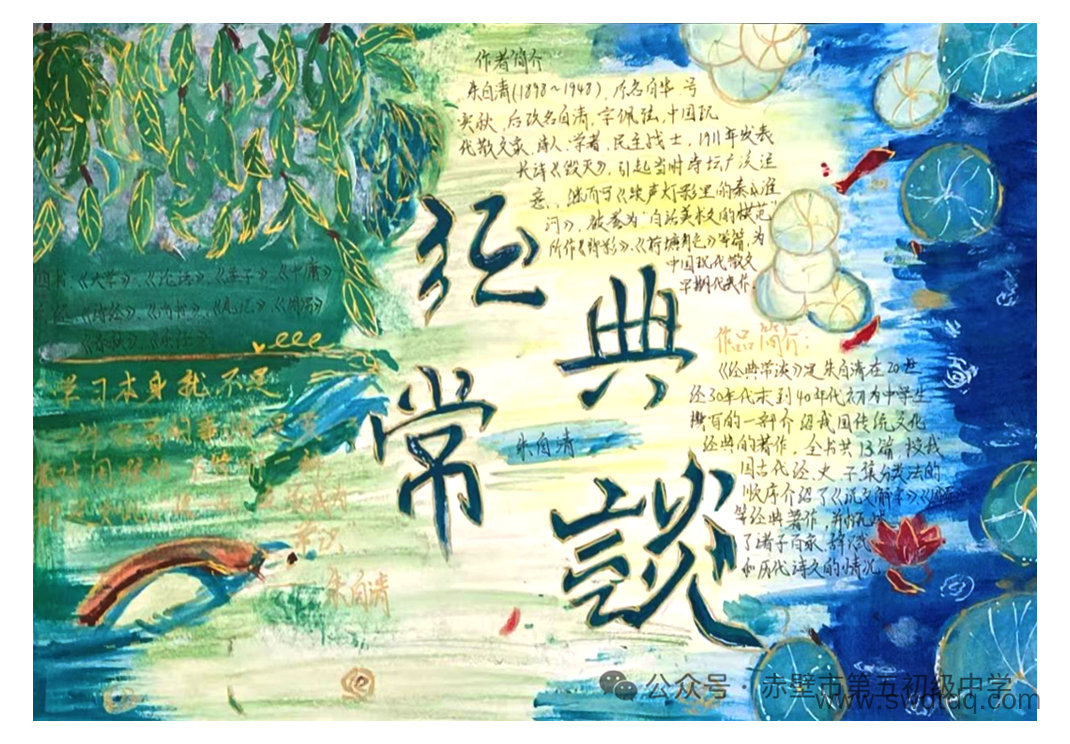 作者简介
朱自清(1898~1948)，原名自华 号
实秋，后改名自清，字佩弦，中国现
代散文家，诗人，学者，民主战士，1911年发表
长诗《毁灭》，引起当时诗坛广泛注
意，继而写《桨声灯影里的秦淮
河》，被誉为"白话美术文的模范"
所作《背影》、《荷塘月色》等篇，为
中国现代散文
早期代表作。
经典常談
朱自清
《大学》、《论语》、《孟子》、《中庸》
《诗经》、《尚书》、《礼记》、《周易》
《春秋》
学习本身就不是
朱自清
作品简介：
《经典常谈》是朱自清在20世
纪30年代末到40年代初为中学生
撰写的一部介绍我国传统文化
经典的著作，全书共13篇 按我
国古代经、史、子、集分类法的
顺序介绍了《说文解字》《周易》
等经典著作，并
了诸子百家，辞赋
和历代诗文的情况
公众号·赤壁市第五初级中学
www.swdtdq.com